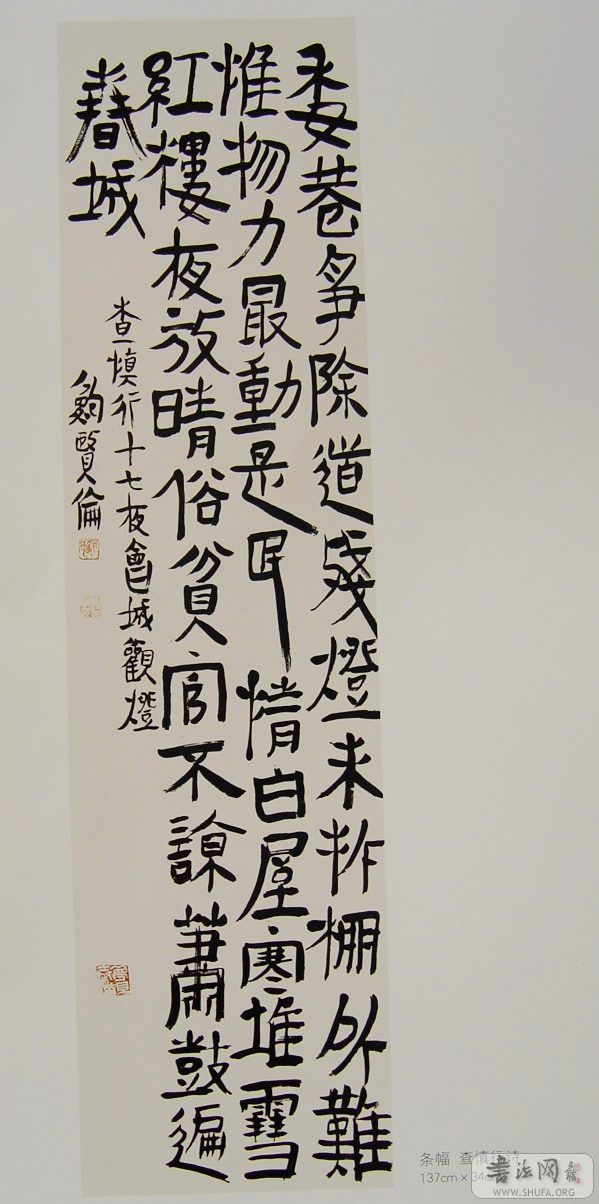 委巷爭除道殘燈未拆棚所難
惟物力最動是民情白屋寒堆雪
紅樓夜放晴俗貧官不諒蕭鼓遍
春城
查慎行十七夜會城觀燈
鮑賢倫
条幅 查慎行诗
137cm×34cm
書法网
WWW.SHUFA.ORG